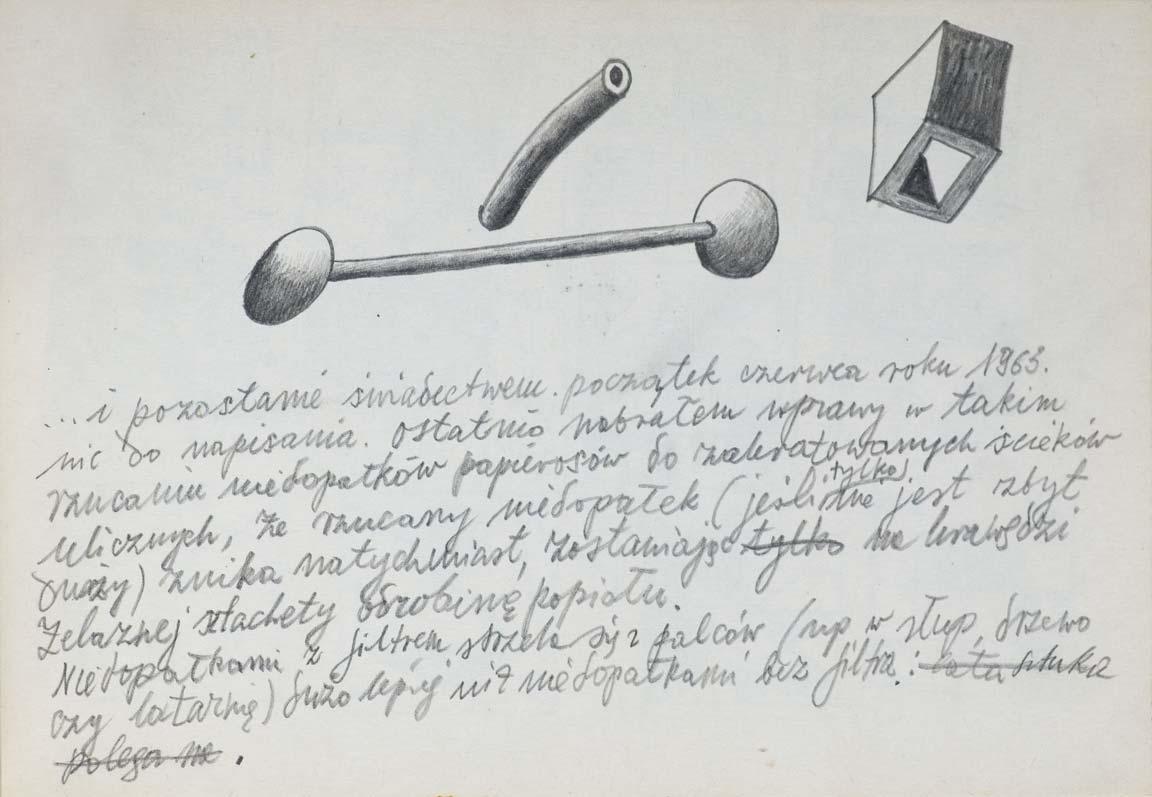 ...i pozostanie świadectwem. początek czerwca roku 1963.
nic do napisania. ostatnio nabrałem wprawy w takim
rzucaniu niedopałków papierosów do zakratowanych ścieków
ulicznych, że rzucany niedopałek (jeśli tylko nie jest zbyt
duży) znika natychmiast, zostawiając tylko na krawędzi
żelaznej sztachety odrobinę popiołu.
Niedopałkami z filtrem strzela się z palców (np w słup, drzewo
czy latarnię) dużo lepiej niż niedopałkami bez filtra: cała sztuka
polega na .